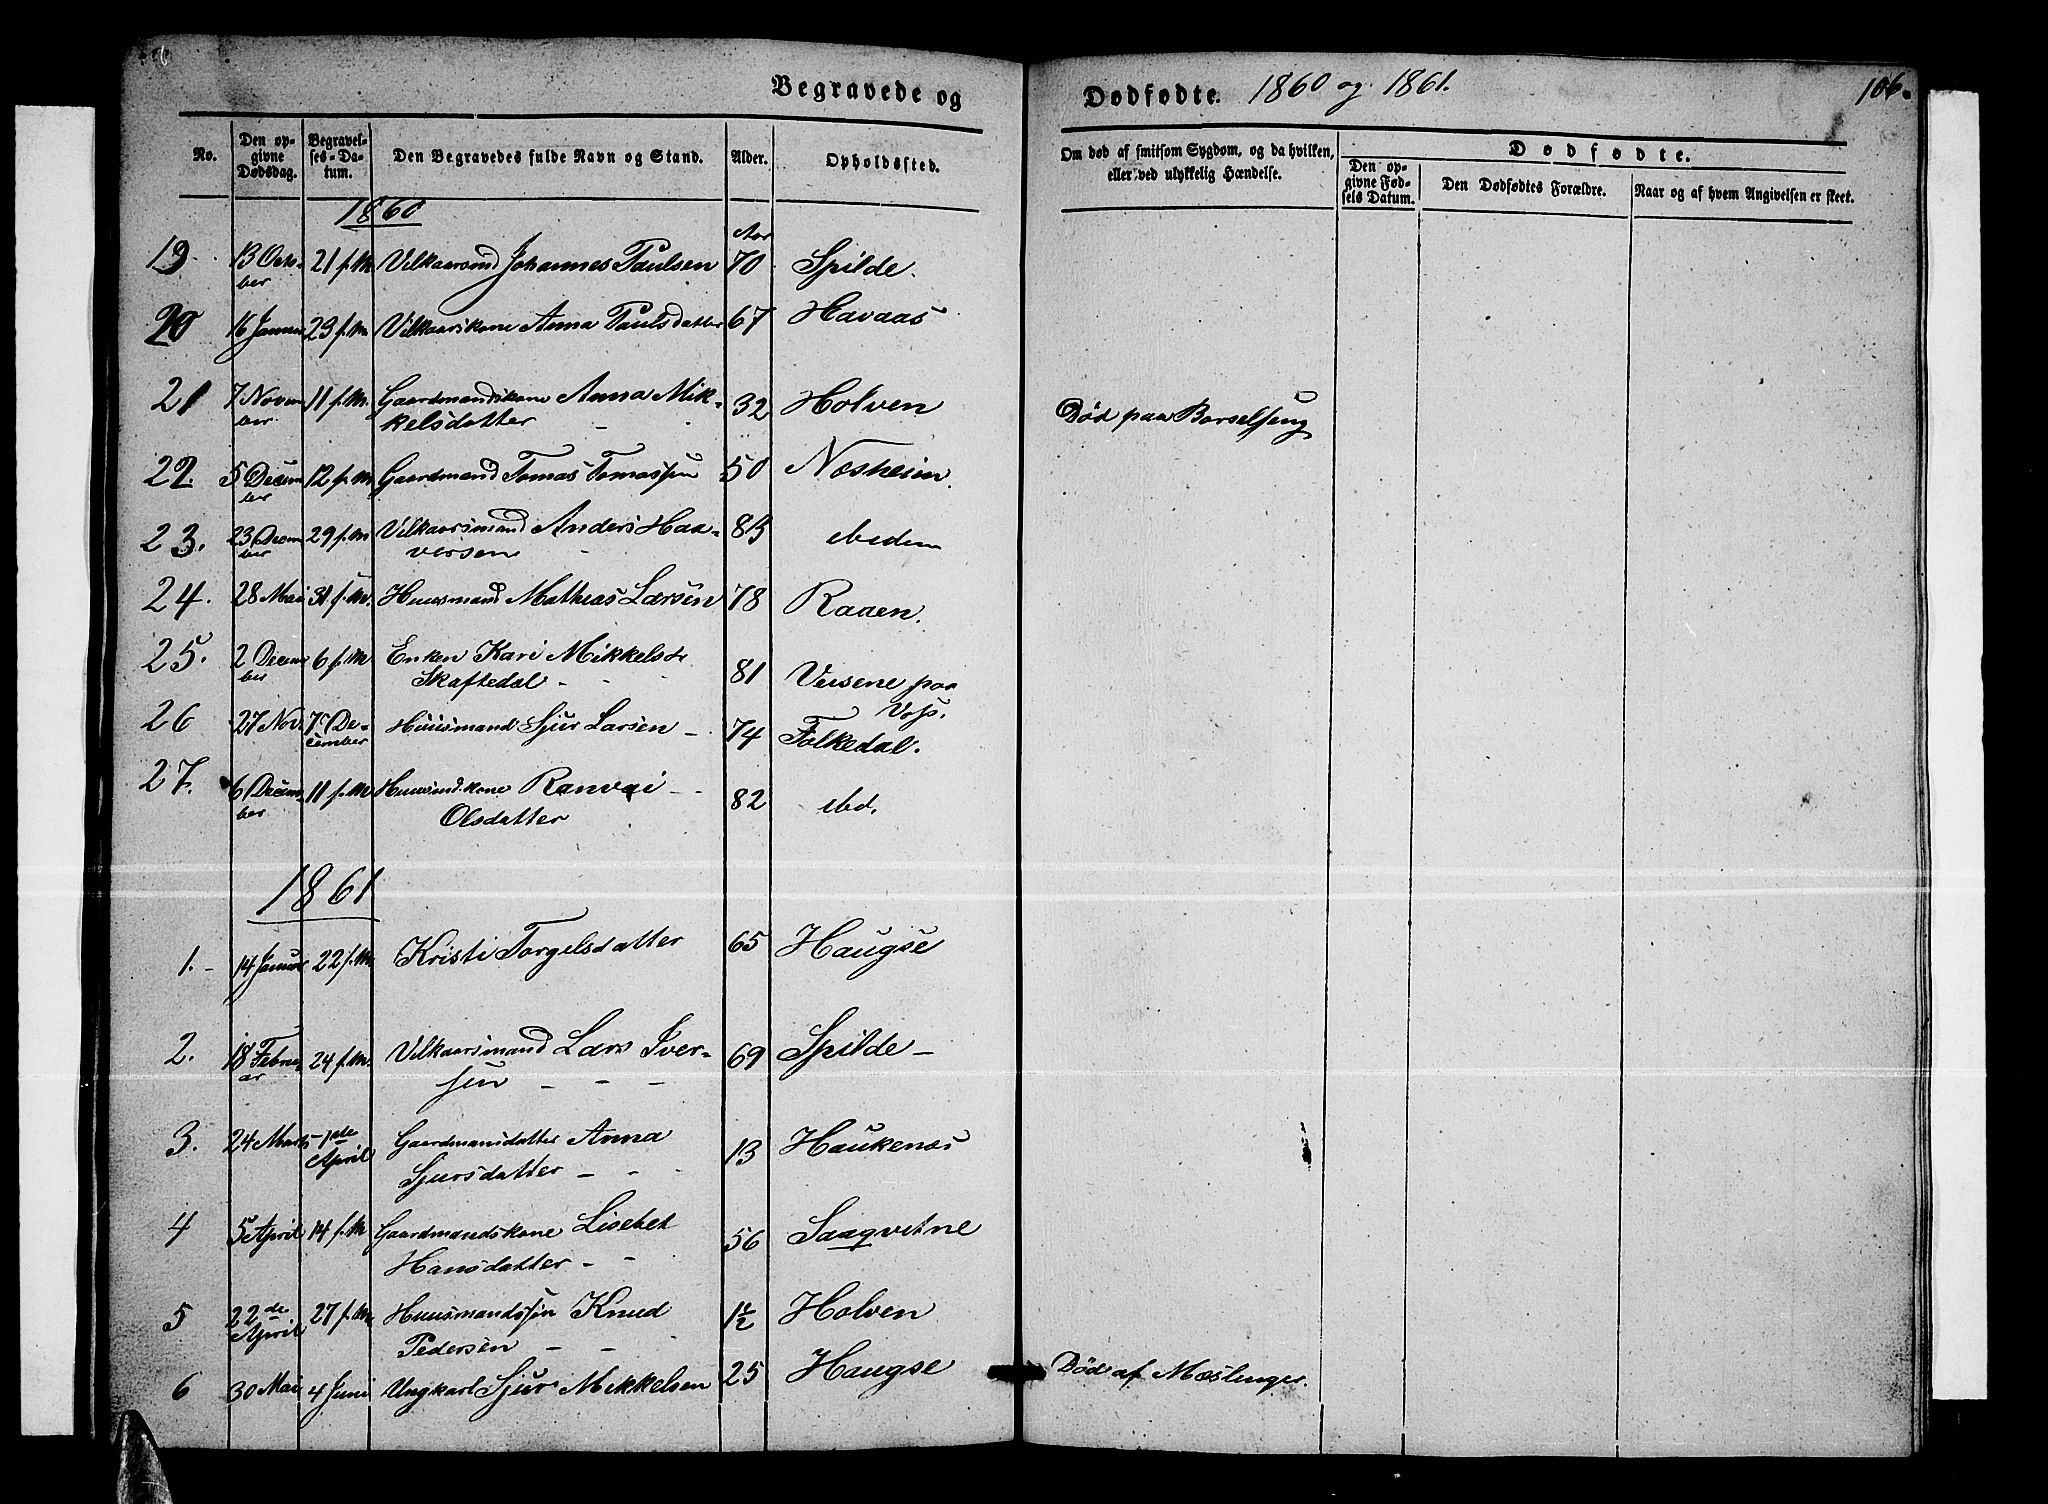 Begravede og
Dødfødte. 1860 og 1861.
106.
No.
Den opgivne Dødsdag.
Begravelses-Datum.
Den Begravedes fulde Navn og Stand.
Alder.
Opholdssted.
Om død af smitsom Sygdom, og da hvilken, eller ved ulykkelig Hændelse.
Dødfødte.
Den opgivne Fødsels Datum.
Den Dødfødtes Forældre.
Naar og af hvem Angivelsen er skeet.
1860
Aar
19. 13 Octo- 21 f. M. Vilkaarsmd Johannes Paulsen 70 Spilde.
ber
20 16 Januar 23 f. M. Vilkaarskone Anna Paulsdatter 67 Havaas
21 7 Novem 11 f. M. Gaardmandskone Anna Mik- 32 Holven Død paa Barselseng
ber kelsdatter -
22. 5 Decem 12 f. M. Gaardmand Tomas Tomassen 50 Næsheim.
ber
23. 23 Decem 29 f. M. Vilkaarsmand Anders Haa- 83 ibidem
ber versen -
24. 28 Mai 31 f. M. Huusmand Mathias Larsen 78 Raaen.
25. 2 Decem 6 f. M Enken Kari Mikkelsd. 81
ber Skaftedal - - Versene paa
Voss.
26 27 Nov. 7de De- Huusmand Sjur Larsen - 74 Folkedal.
cember
27. 6 Decem- 11 f. M Huusmandskone Ranvei - - 82 ibd.
ber Olsdatter
1861
1. - 14 Januar 22 f. M. Kristi Torgelsdatter 65 Haugse
2. 18 Febru- 24 f. M. Vilkaarsmand Lars Iver- 69 Spilde -
ar sen - - -
3. 24 Marts 1ste Gaardmansdatter Anna 13 Haukenæs
April Sjursdatter - -
4 5 April 14 f. M Gaardmandskone Lisebet 56 Saaqvitne
Hansdatter - -
5 22de 27 f. M. Huusmandssøn Knud 1½ Holven
April Pedersen - -
6 30 Mai 4 Juni Ungkarl Sjur Mikkelsen 25 Haugse Død af Mæslinger.